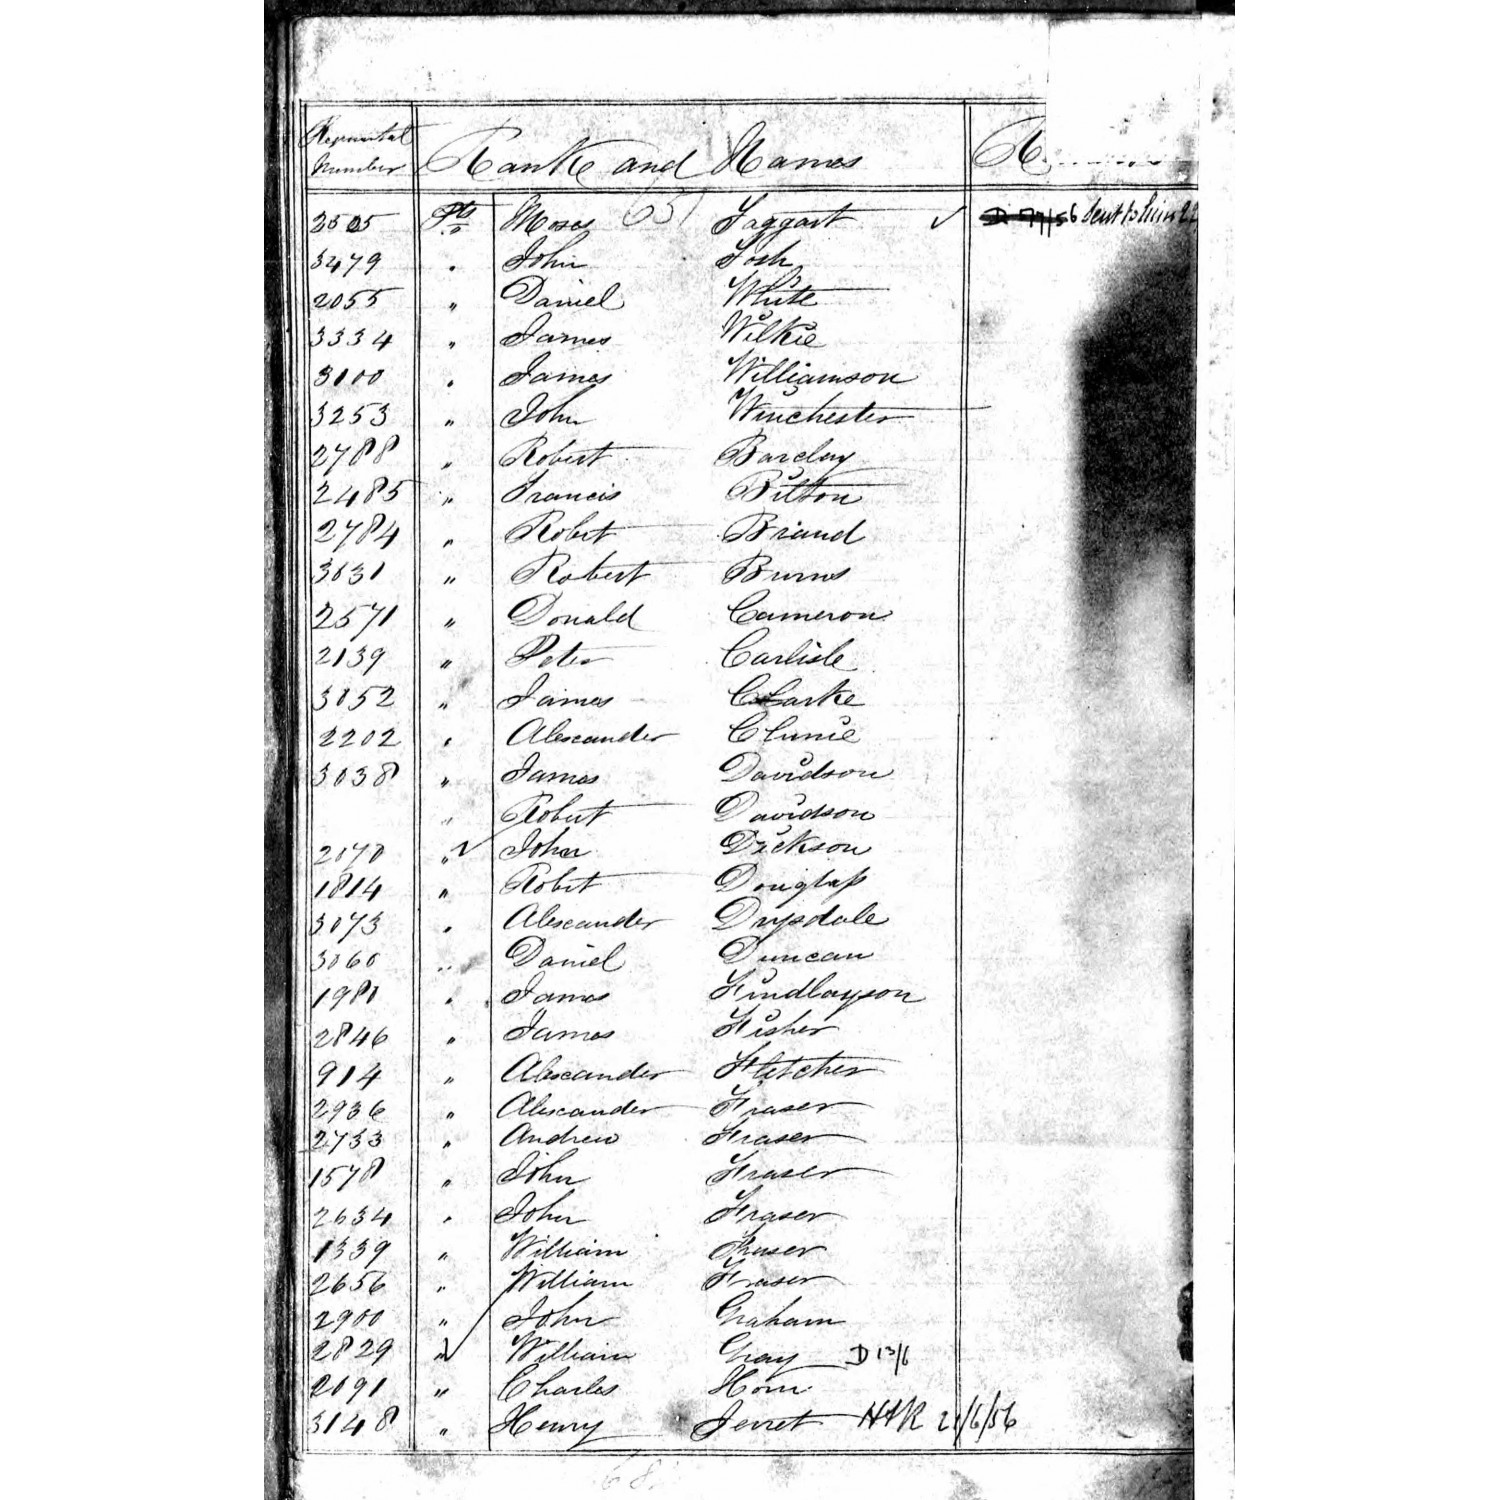 Regimental Number Rank and Names
(65)
2505 Pte Moses Taggart ✓ D 77/56 Sent to him 22
3479 " John Tosh
2055 " Daniel White
3334 " James Wilkie
3100 " James Williamson
3253 " John Winchester
2788 " Robert Barclay
2485 " Francis Bitton
2784 " Robert Briand
3031 " Robert Burns
2571 " Donald Cameron
2139 " Peter Carlisle
3052 " James Clarke
2202 " Alexander Clunie
3038 " James Davidson
" Robert Davidson
2070 " ✓ John Dickson
1814 " Robert Douglass
3073 " Alexander Drysdale
3060 " Daniel Duncan
1980 " James Findlayson
2846 " James Fisher
914 " Alexander Fletcher
2936 " Alexander Fraser
2733 " Andrew Fraser
1578 " John Fraser
2634 " John Fraser
1339 " William Fraser
2656 " William Fraser
2900 " John Graham
2829 " ✓ William Gray D 13/6
2091 " Charles Horn
3148 " Henry Jerret 21/6/56
68